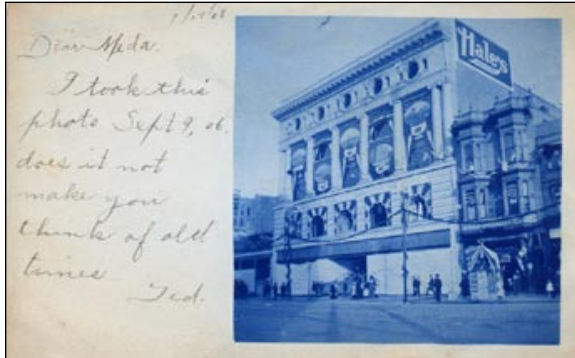 Dear Meda.
I took this
photo Sept 9, 06.
does it not
make you
think of old
times
Ted.
Hale's